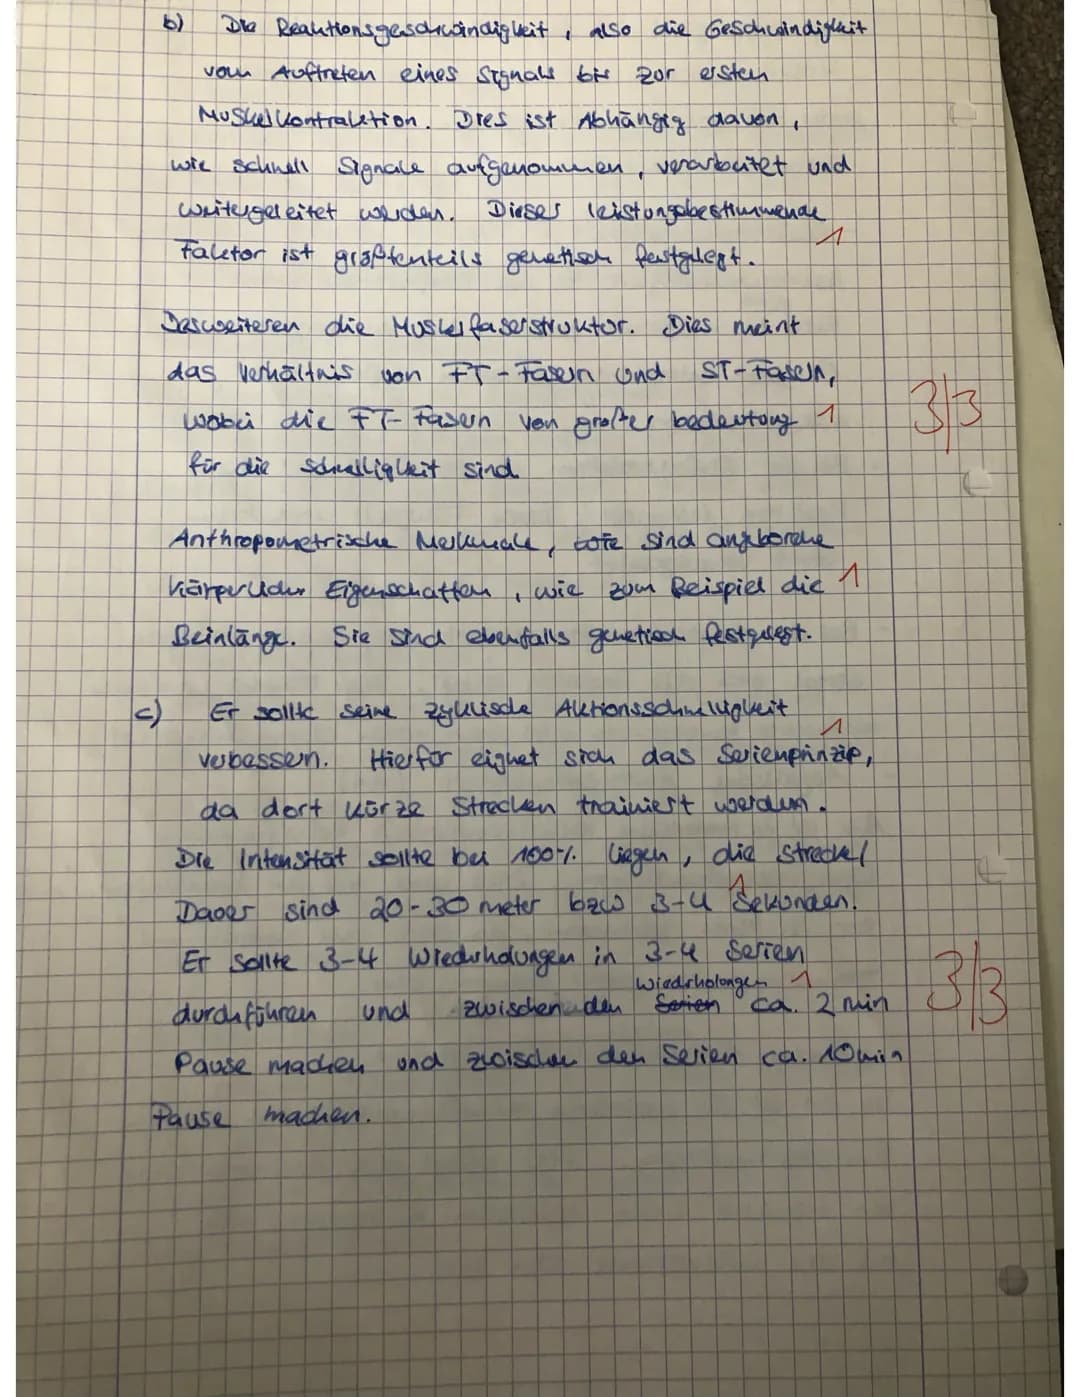 b) Die Reaktionsgeschwindigkeit, also die Geschwindigkeit
vom Auftreten eines Signals bis zur ersten
Muskelkontraktion. Dies ist Abhängig davon,
wie schnell Signale aufgenommen, verarbeitet und
weitergeleitet werden. Dieser leistungsbestimmende
1
Faktor ist größtenteils genetisch festgelegt.
Desweiteren die Muskelfaserstruktur. Dies meint
das Verhältnis von FT-Fasern und ST-Fasern,
wobei die FT-Fasern von großer bedeutung 1 3/3
für die Schnelligkeit sind
Anthropometrische Merkmale, sind angeborene
Körperliche Eigenschaften, wie zum Beispiel die 1
Beinlänge. Sie sind ebenfalls genetisch festgelegt.
c) Er sollte seine zyklische Aktionsschnelligkeit
1
verbessern. Hierfür eignet sich das Serienprinzip,
da dort kürze Strecken trainiert werden.
Die Intensität sollte bei 100% liegen, die Strecke/
1
Dauer sind 20-30 meter bzw 3-4 Sekunden.
Er sollte 3-4 Wiederholungen in 3-4 Serien
Wiederholungen 1
durchführen und zwischen den Serien ca. 2 min 3/3
Pause machen und zwischen den Serien ca. 10 min
Pause machen.